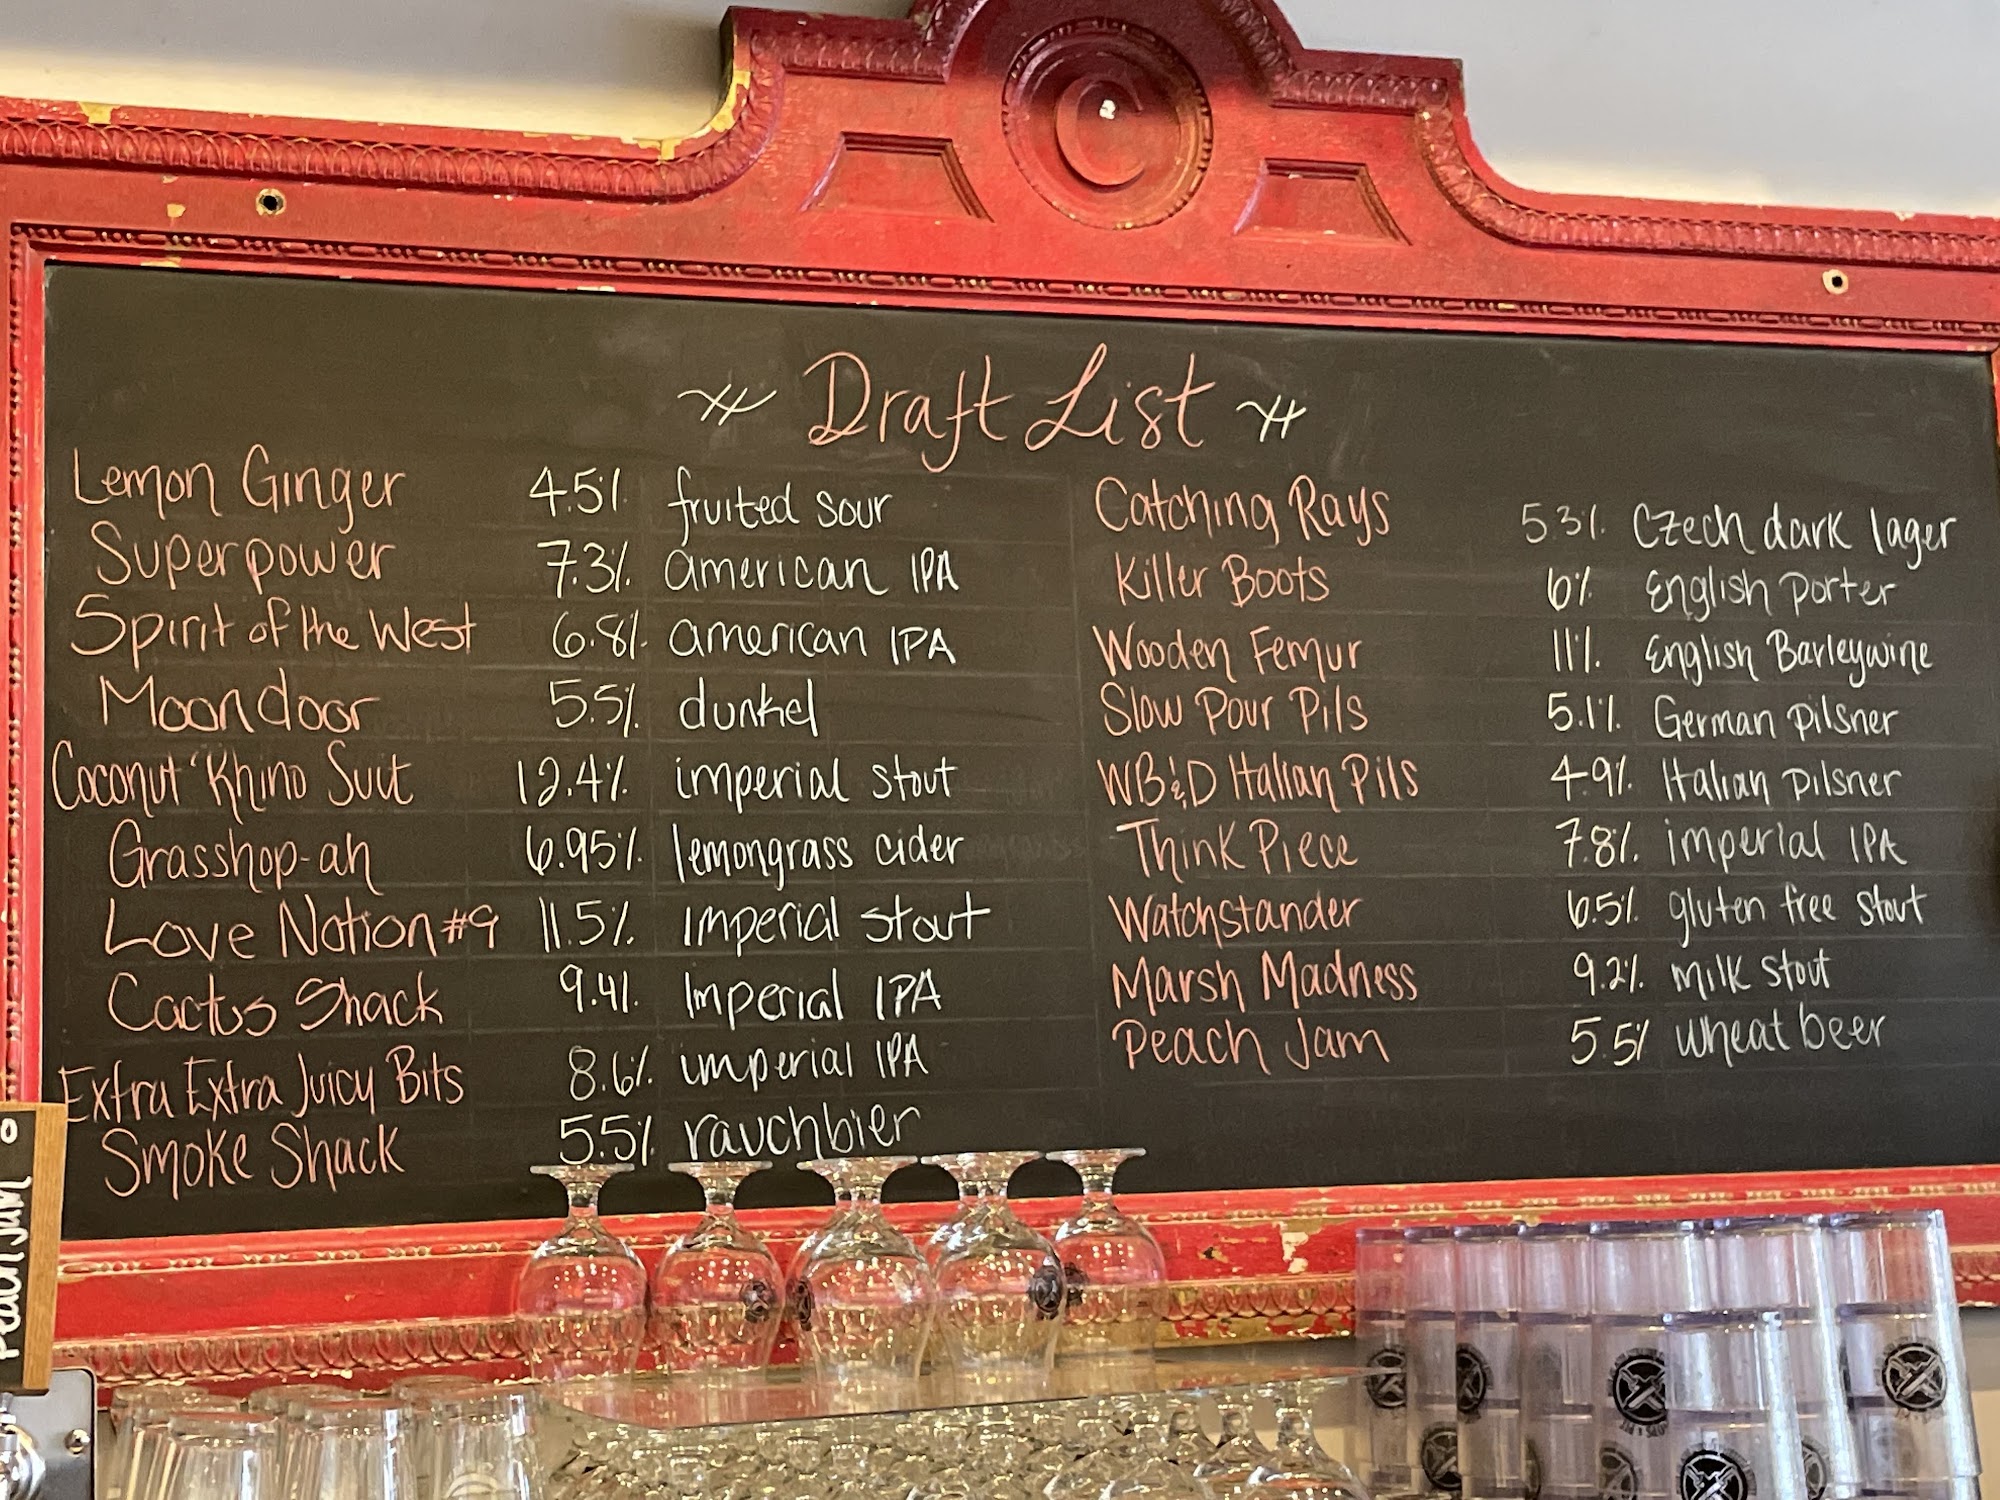 C
Draft List
Lemon Ginger 4.5% fruited sour
Superpower 7.3% american IPA
Spirit of the West 6.8% american IPA
Moondoor 5.5% dunkel
Coconut 'Rhino Suit 12.4% imperial stout
Grasshop-ah 6.95% lemongrass cider
Love Notion #9 11.5% Imperial stout
Cactus Shack 9.4% Imperial IPA
Extra Extra Juicy Bits 8.6% imperial IPA
Smoke Shack 5.5% rauchbier
Catching Rays 5.3% Czech dark lager
Killer Boots 6% English porter
Wooden Femur 11% English Barleywine
Slow Pour Pils 5.1% German pilsner
WB&D Italian Pils 4.9% Italian pilsner
Think Piece 7.8% imperial IPA
Watchstander 6.5% gluten free stout
Marsh Madness 9.2% milk stout
Peach Jam 5.5% wheat beer
Peach Jam